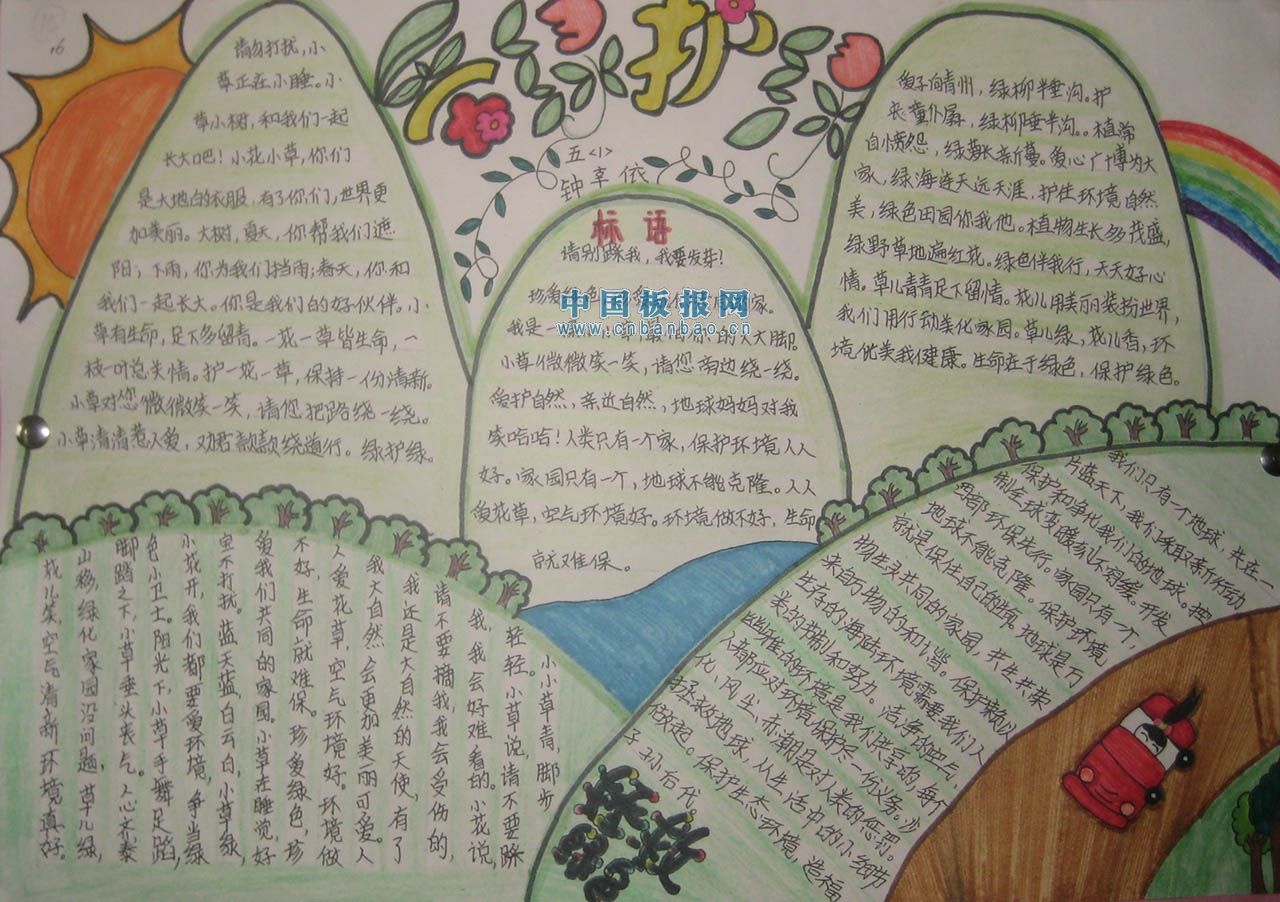 16
护
五<1>
请勿打扰,小
草正在小睡。小
草小树,和我们一起
长大吧!小花小草,你们
是大地的衣服,有了你们,世界更
加美丽。大树,夏天,你帮我们遮
阳;下雨,你为我们挡雨;春天,你和
我们一起长大。你是我们的好伙伴。小
草有生命,足下多留青。一花一草皆生命,一
枝一叶总关情。护一花一草,保持一份清新。
小草对您微微笑一笑,请您把路绕一绕。
小草清清惹人爱,劝君款款绕道行。绿护绿。
标语
请别踩我,我要发芽!
中国板报网
www.cnbanbao.cn
小草微微笑一笑,请您旁边绕一绕。
爱护自然,亲近自然,地球妈妈对我
笑哈哈!人类只有一个家,保护环境人人
好。家园只有一个,地球不能克隆。人人
爱花草,空气环境好。环境做不好,生命
就难保。
爱子向青州,绿柳半垂沟。护
丧童仆孱,绿柳垂半沟。。植常
自愤怨,绿萝长新蔓。爱心广博为大
家,绿海连天远天涯,护住环境自然
美,绿色田园你我他。植物生长多茂盛,
绿野草地遍红花。绿色伴我行,天天好心
情。草儿青青足下留情。花儿用美丽装扮世界,
我们用行动美化家园。草儿绿,花儿香,环
境优美我健康。生命在于绿色,保护绿色。
小小草青,脚步
轻轻。小草说,请不要踩
我,我会好难看的。小花说,
请不要摘我,我会受伤的,
我还是大自然的天使,有了
我大自然会更加美丽可爱。人
人爱花草,空气环境好。环境做
不好,生命就难保。珍爱绿色,珍
爱我们共同的家园。小草在睡觉,好
宝不打扰。蓝天蓝,白云白,小草绿,
小花开,我们都要爱环境,争当绿
色小卫士。阳光下,小草手舞足蹈,
脚踏之下,小草垂头丧气。人心齐泰
山移,绿化家园沿问题,草儿绿,
花儿笑,空气清新环境真好。
我们只有一个地球,共在一
片蓝天下,我们采取实际行动
保护和净化我们的地球。控
制全球变暖刻不容缓。开发
西部环保先行。家园只有一个,
地球不能克隆。保护环境
就是保住自己的饭碗,地球是万
物生灵共同的家园,共生共荣
来自万物的和谐。保护赖以
生存的海陆环境需要我们人
类的努力。洁净的空气,
优雅的环境是我们共享的,每个
人都应对环境保护尽一份义务。沙
化、风尘、赤潮是对人类的惩罚。
拯救地球,从生活中的小细节
做起。保护生态环境,造福
子孙后代